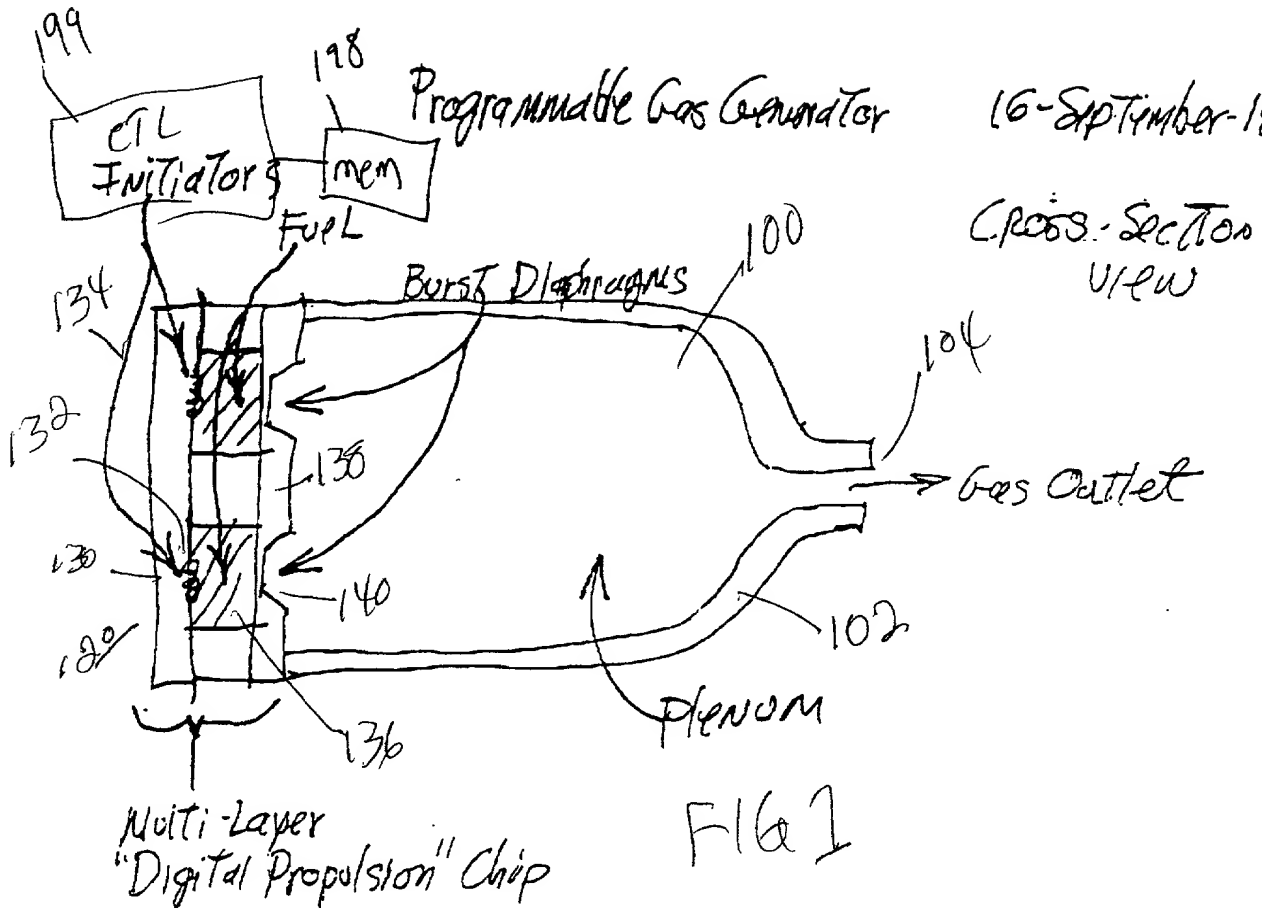 199
198
Programmable Gas Generator
16-September-1
CTL
Initiators
mem
Cross-Section
View
Fuel
100
Burst Diaphragms
134
104
132
138
Gas Outlet
130
140
120
102
136
Plenum
Multi-Layer
"Digital Propulsion" Chip
FIG 1